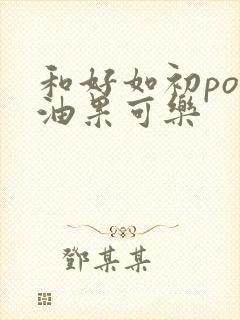 和好如初po
油果可樂
鄧某某